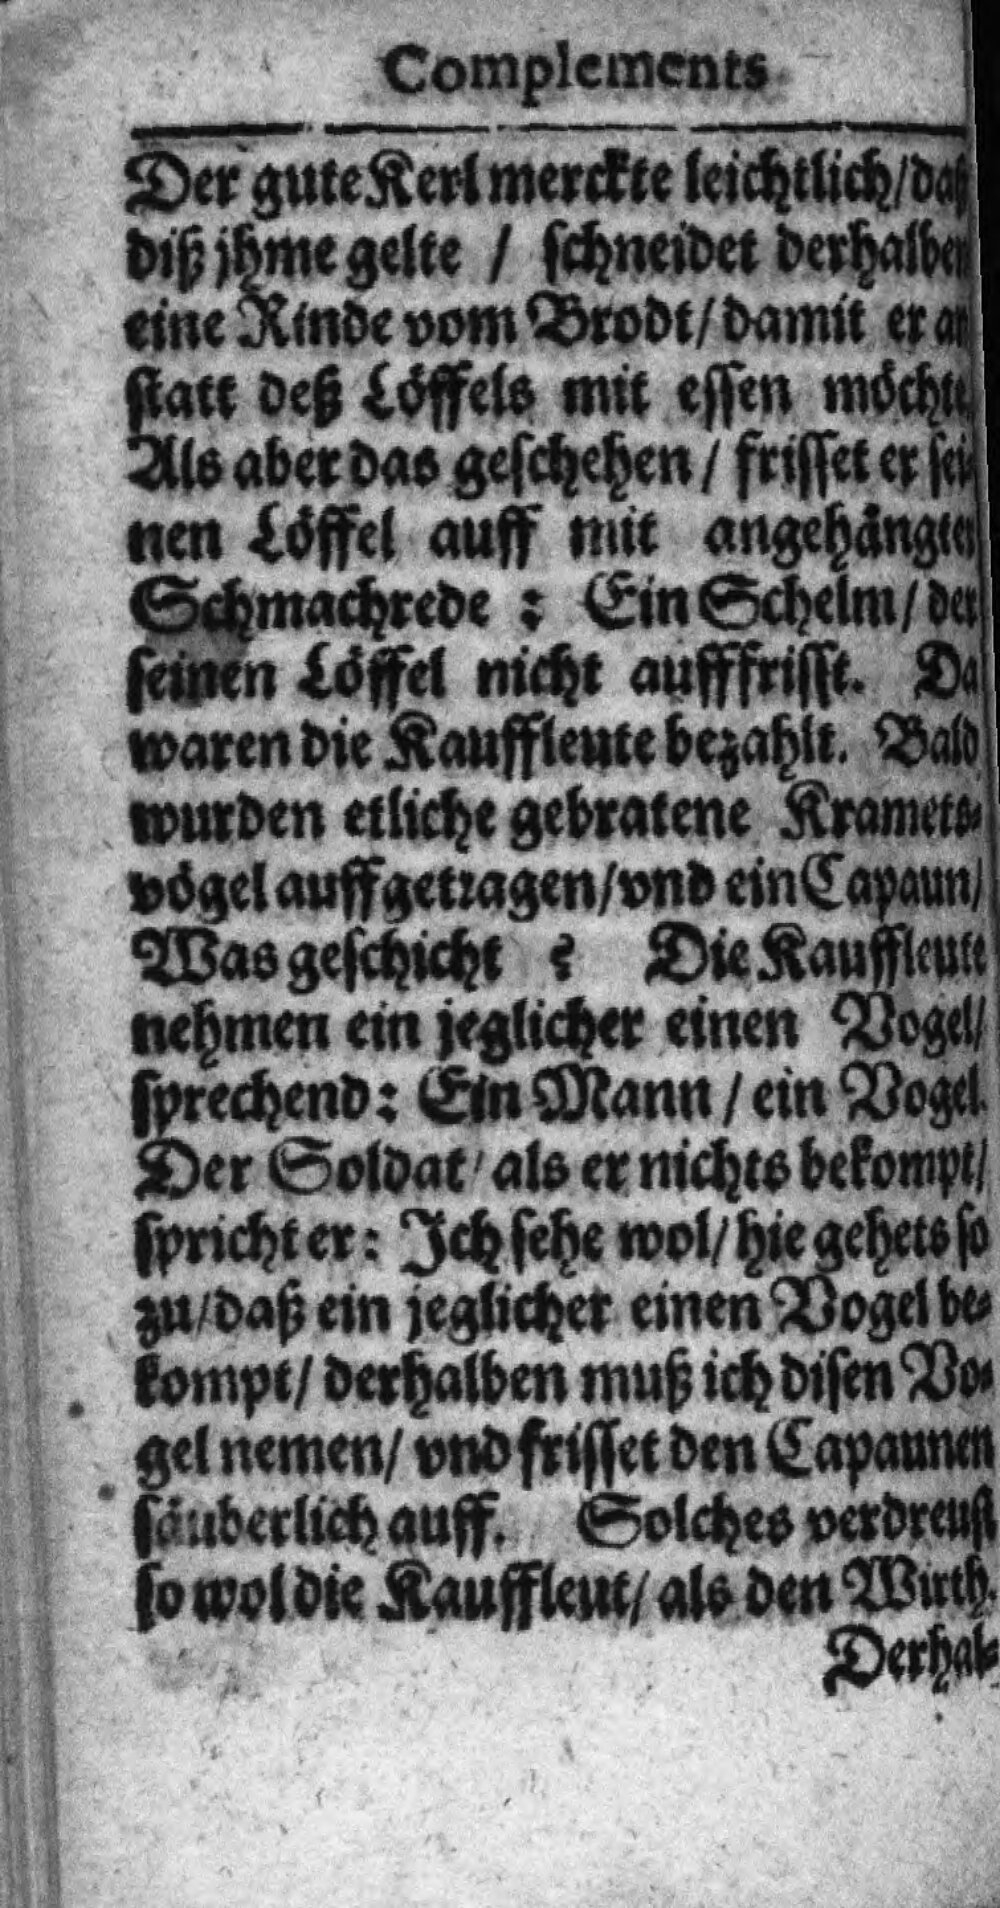 Complements
Der gute Kerl merckte leichtlich/daß
diß jhme gelte / schneidet derhalben
eine Rinde vom Brodt/damit er an
statt deß Löffels mit essen möchte.
Als aber das geschehen / frisset er sei-
nen Löffel auff mit angehängter
Schmachrede : Ein Schelm / der
seinen Löffel nicht aufffrisst. Da
waren die Kauffleute bezahlt. Bald
wurden etliche gebratene Kramets-
vögel auffgetragen/vnd ein Capaun/
Was geschicht ? Die Kauffleute
nehmen ein jeglicher einen Vogel/
sprechend: Ein Mann / ein Vogel.
Der Soldat/ als er nichts bekompt/
spricht er: Ich sehe wol/ hie gehets so
zu/daß ein jeglicher einen Vogel be-
kompt/ derhalben muß ich disen Vo-
gel nemen/ vnd frisset den Capaunen
säuberlich auff. Solches verdreust
so wol die Kauffleut/ als den Wirth.
Derhal-